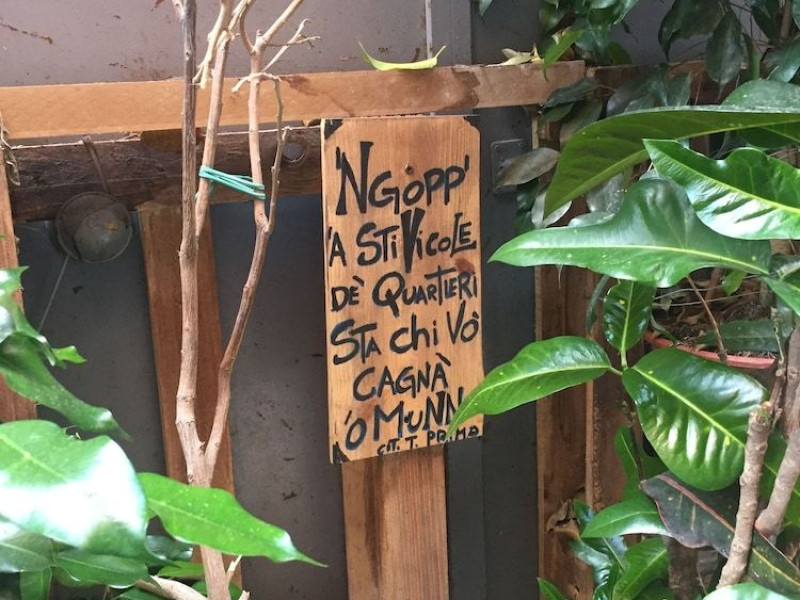 'NGOPP'
'A STI VICOLE
DÈ QUARTIERI
STA CHI VÒ
CAGNÀ
'O MUNN
CIT. T. PRIMA